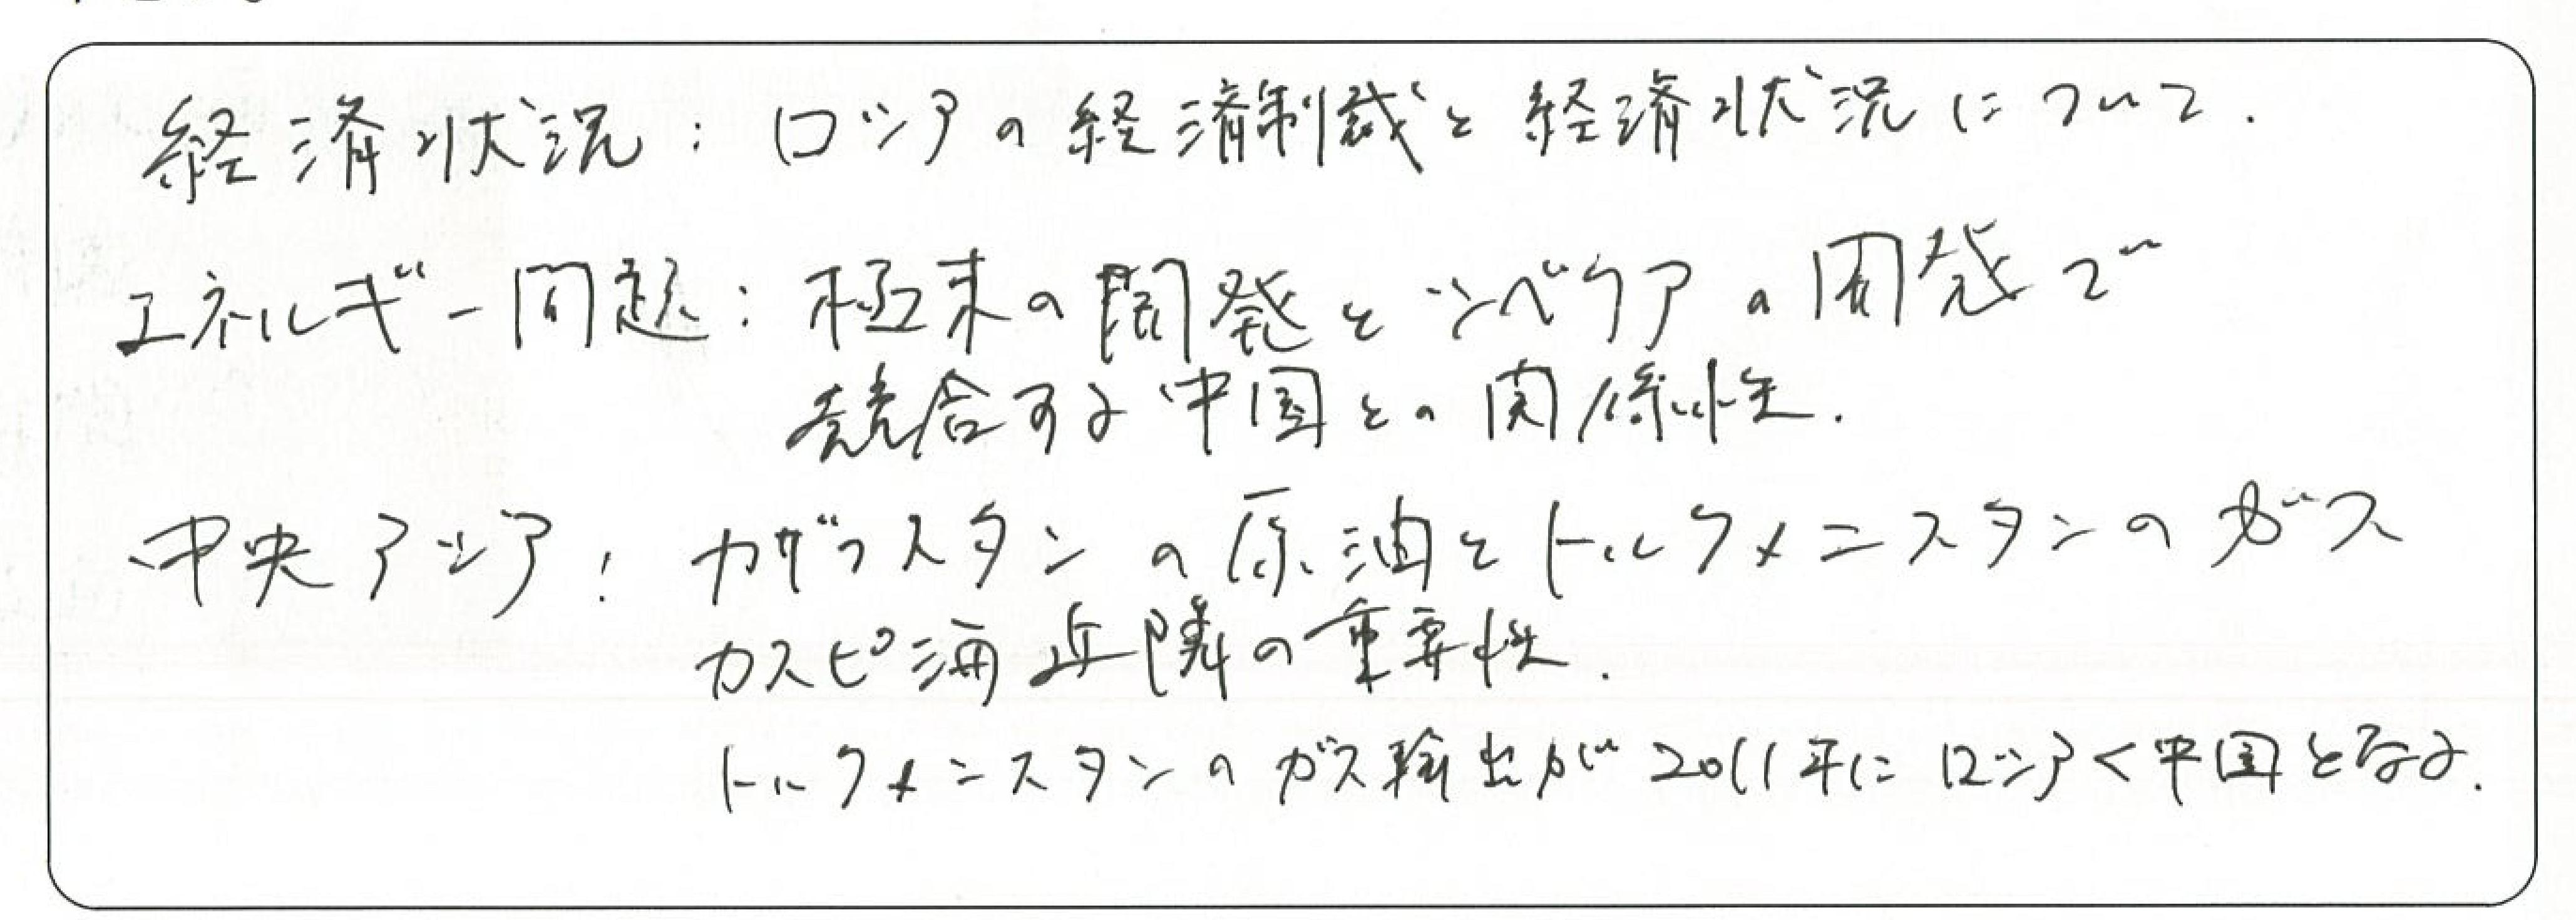 経済状況：ロシアの経済制裁と経済状況について.
エネルギー問題：極東の開発とシベリアの開発で
競合する中国との関係性.
中央アジア：カザフスタンの原油とトルクメニスタンのガス
カスピ海近隣の重要性.
トルクメニスタンのガス輸出が2011年にロシア＜中国となる.